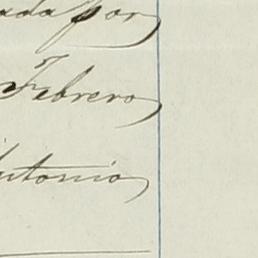 ada por
Febrero
Antonio